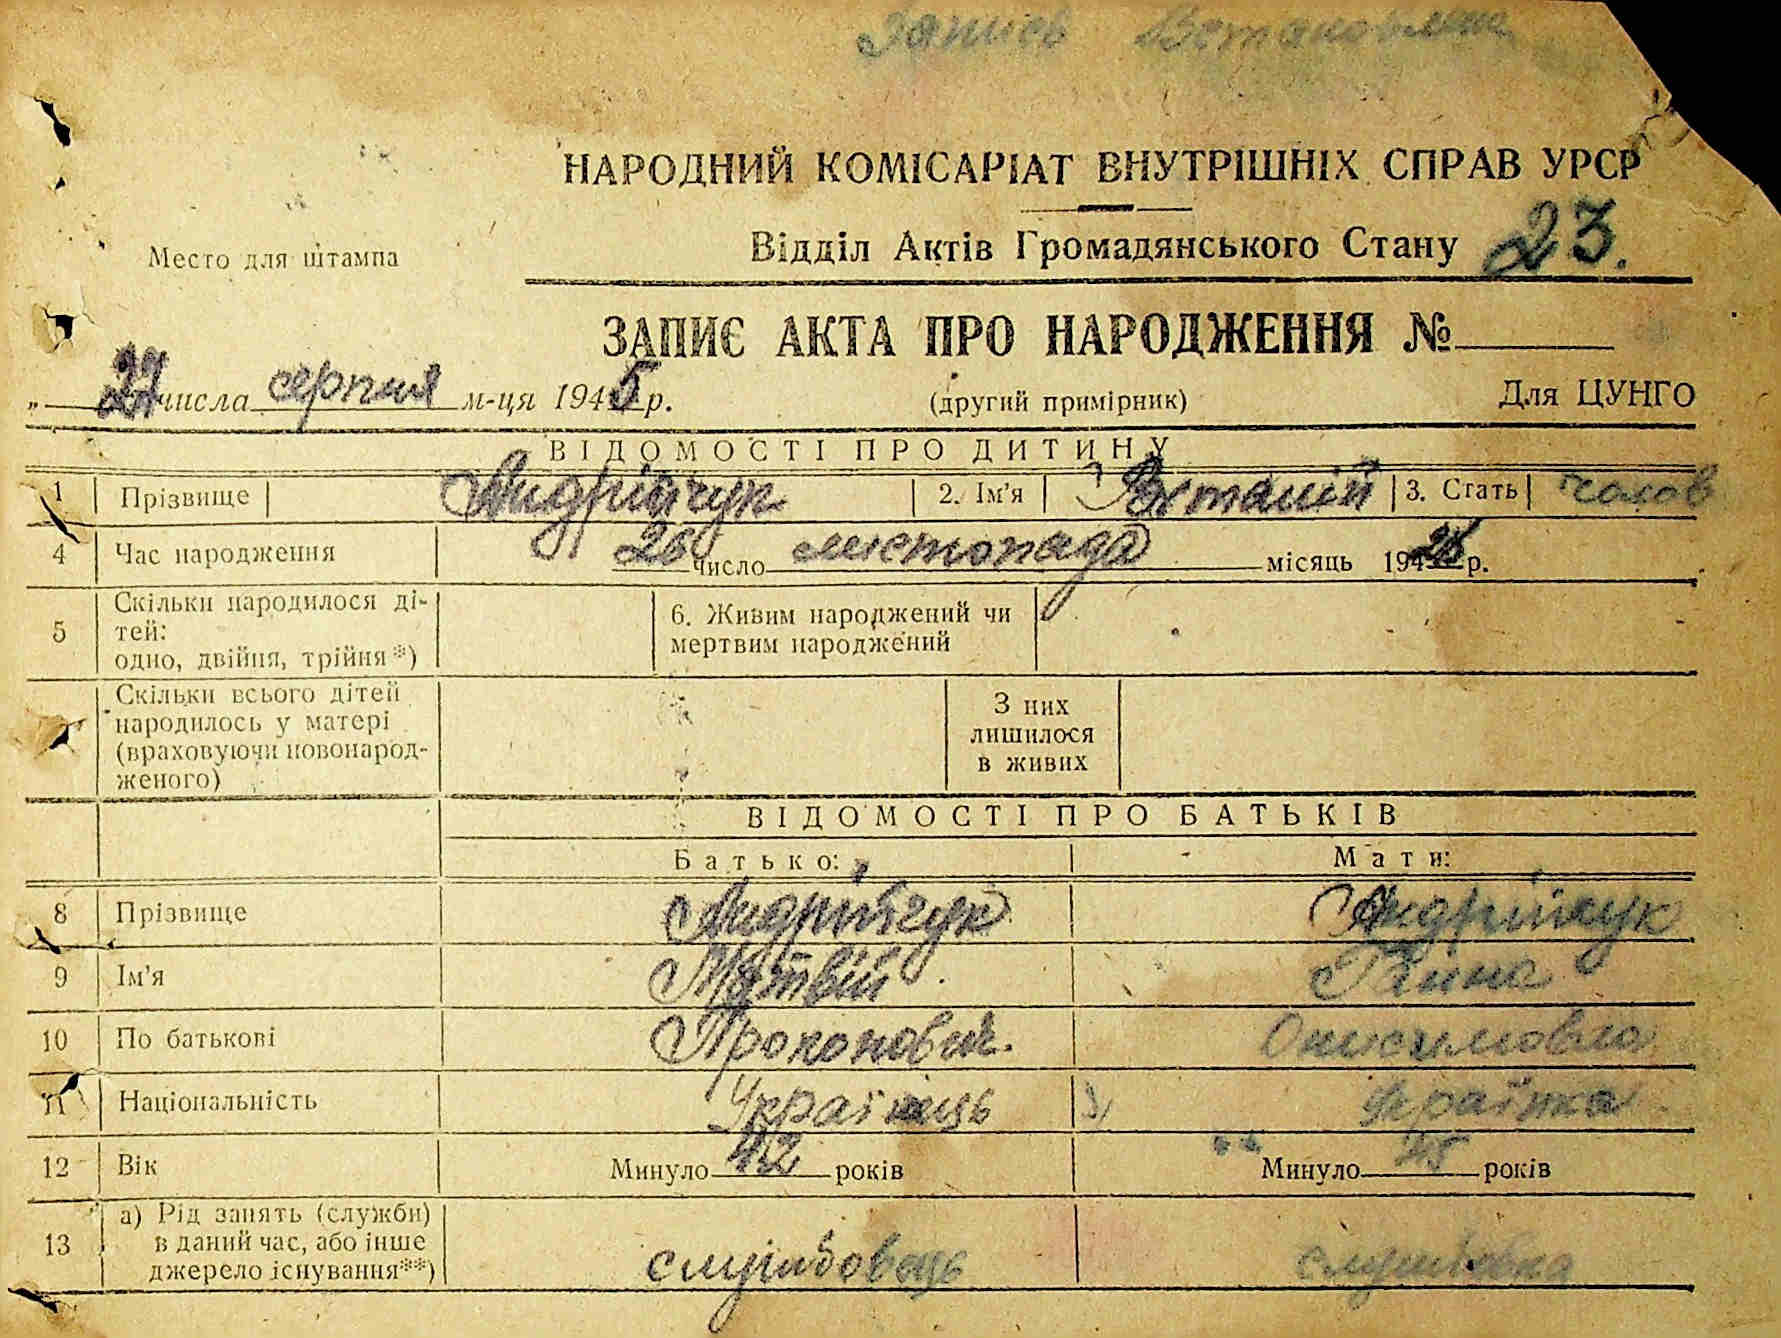 Запись Встановлена
НАРОДНИЙ КОМІСАРІАТ ВНУТРІШНІХ СПРАВ УРСР
Место для штампа
Відділ Актів Громадянського Стану 23.
ЗАПИС АКТА ПРО НАРОДЖЕННЯ №
„ 27 числа серпня м-ця 1945 р. (другий примірник) Для ЦУНГО
ВІДОМОСТІ ПРО ДИТИНУ
1 Прізвище Андрійчук 2. Ім’я 3. Стать чолов
4 Час народження 26 число листопада місяць 194 р.
5 Скільки народилося ді-
тей:
одно, двійня, трійня*)
6. Живим народжений чи
мертвим народжений
Скільки всього дітей
народилось у матері
(враховуючи новонарод-
женого)
З них
лишилося
в живих
ВІДОМОСТІ ПРО БАТЬКІВ
Батько: Мати:
8 Прізвище Андрійчук Андрійчук
9 Ім’я Матвій Ганна
10 По батькові Прокопович. Онисимовна
11 Національність Українець Українка
12 Вік Минуло 42 років Минуло років
13 а) Рід занять (служби)
в даний час, або інше
джерело існування**)
службовець службовка